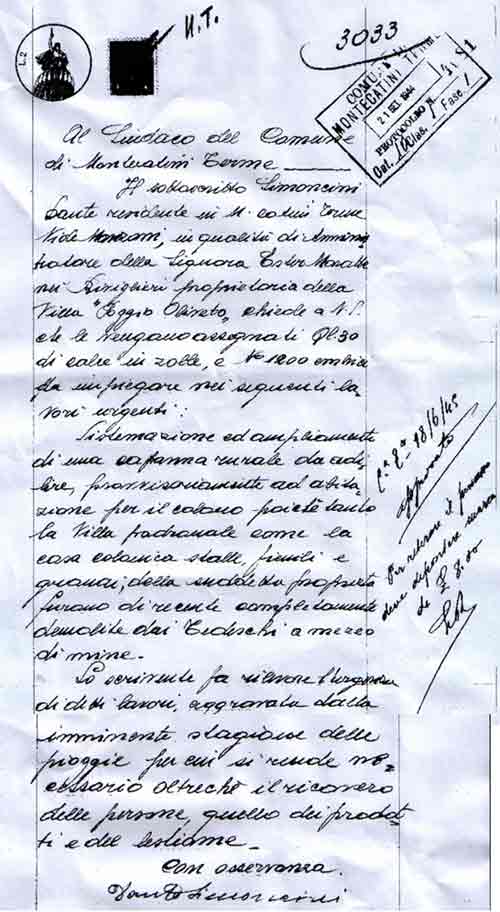 L. 2
H. T.
3033
COMUNE
MONTECATINI TERME
21 DIC. 1944
PROTOCOLLO N.
Cat. Clas. Fasc. 1
Al Sindaco del Comune
di Montecatini Terme
Il sottoscritto Simoncini
Dante residente in M. catini Terme
Viale in qualità di Ammini
tratore della Signora Ester
nei proprietaria della
Villa "Poggio Oliveto", chiede a V.S.
che le vengano assegnati Ql. 30
di calce in zolle, e N° 1200 embrici
da impregare nei seguenti la-
vori urgenti:
Sistemazione ed ampliamento
di una capanna rurale da adi-
bire, provvisoriamente ad abita-
zione per il colono poichè tanto
la Villa padronale come la
casa colonica stalle, fienili e
granai, della suddetta proprietà
furono di recente completamente
demolite dai Tedeschi a mezzo
di mine.
Lo scrivente fa rilevare l'urgenza
di detti lavori, aggravata dalla
imminente stagione delle
pioggie per cui si rende ne-
cessario oltrechè il ricovero
delle persone, quello dei prodot-
ti e del bestiame.
Con osservanza.
Dante Simoncini
18/6/45
approvato
Per ritirare il permesso
deve depositare marca
da £ 8.00